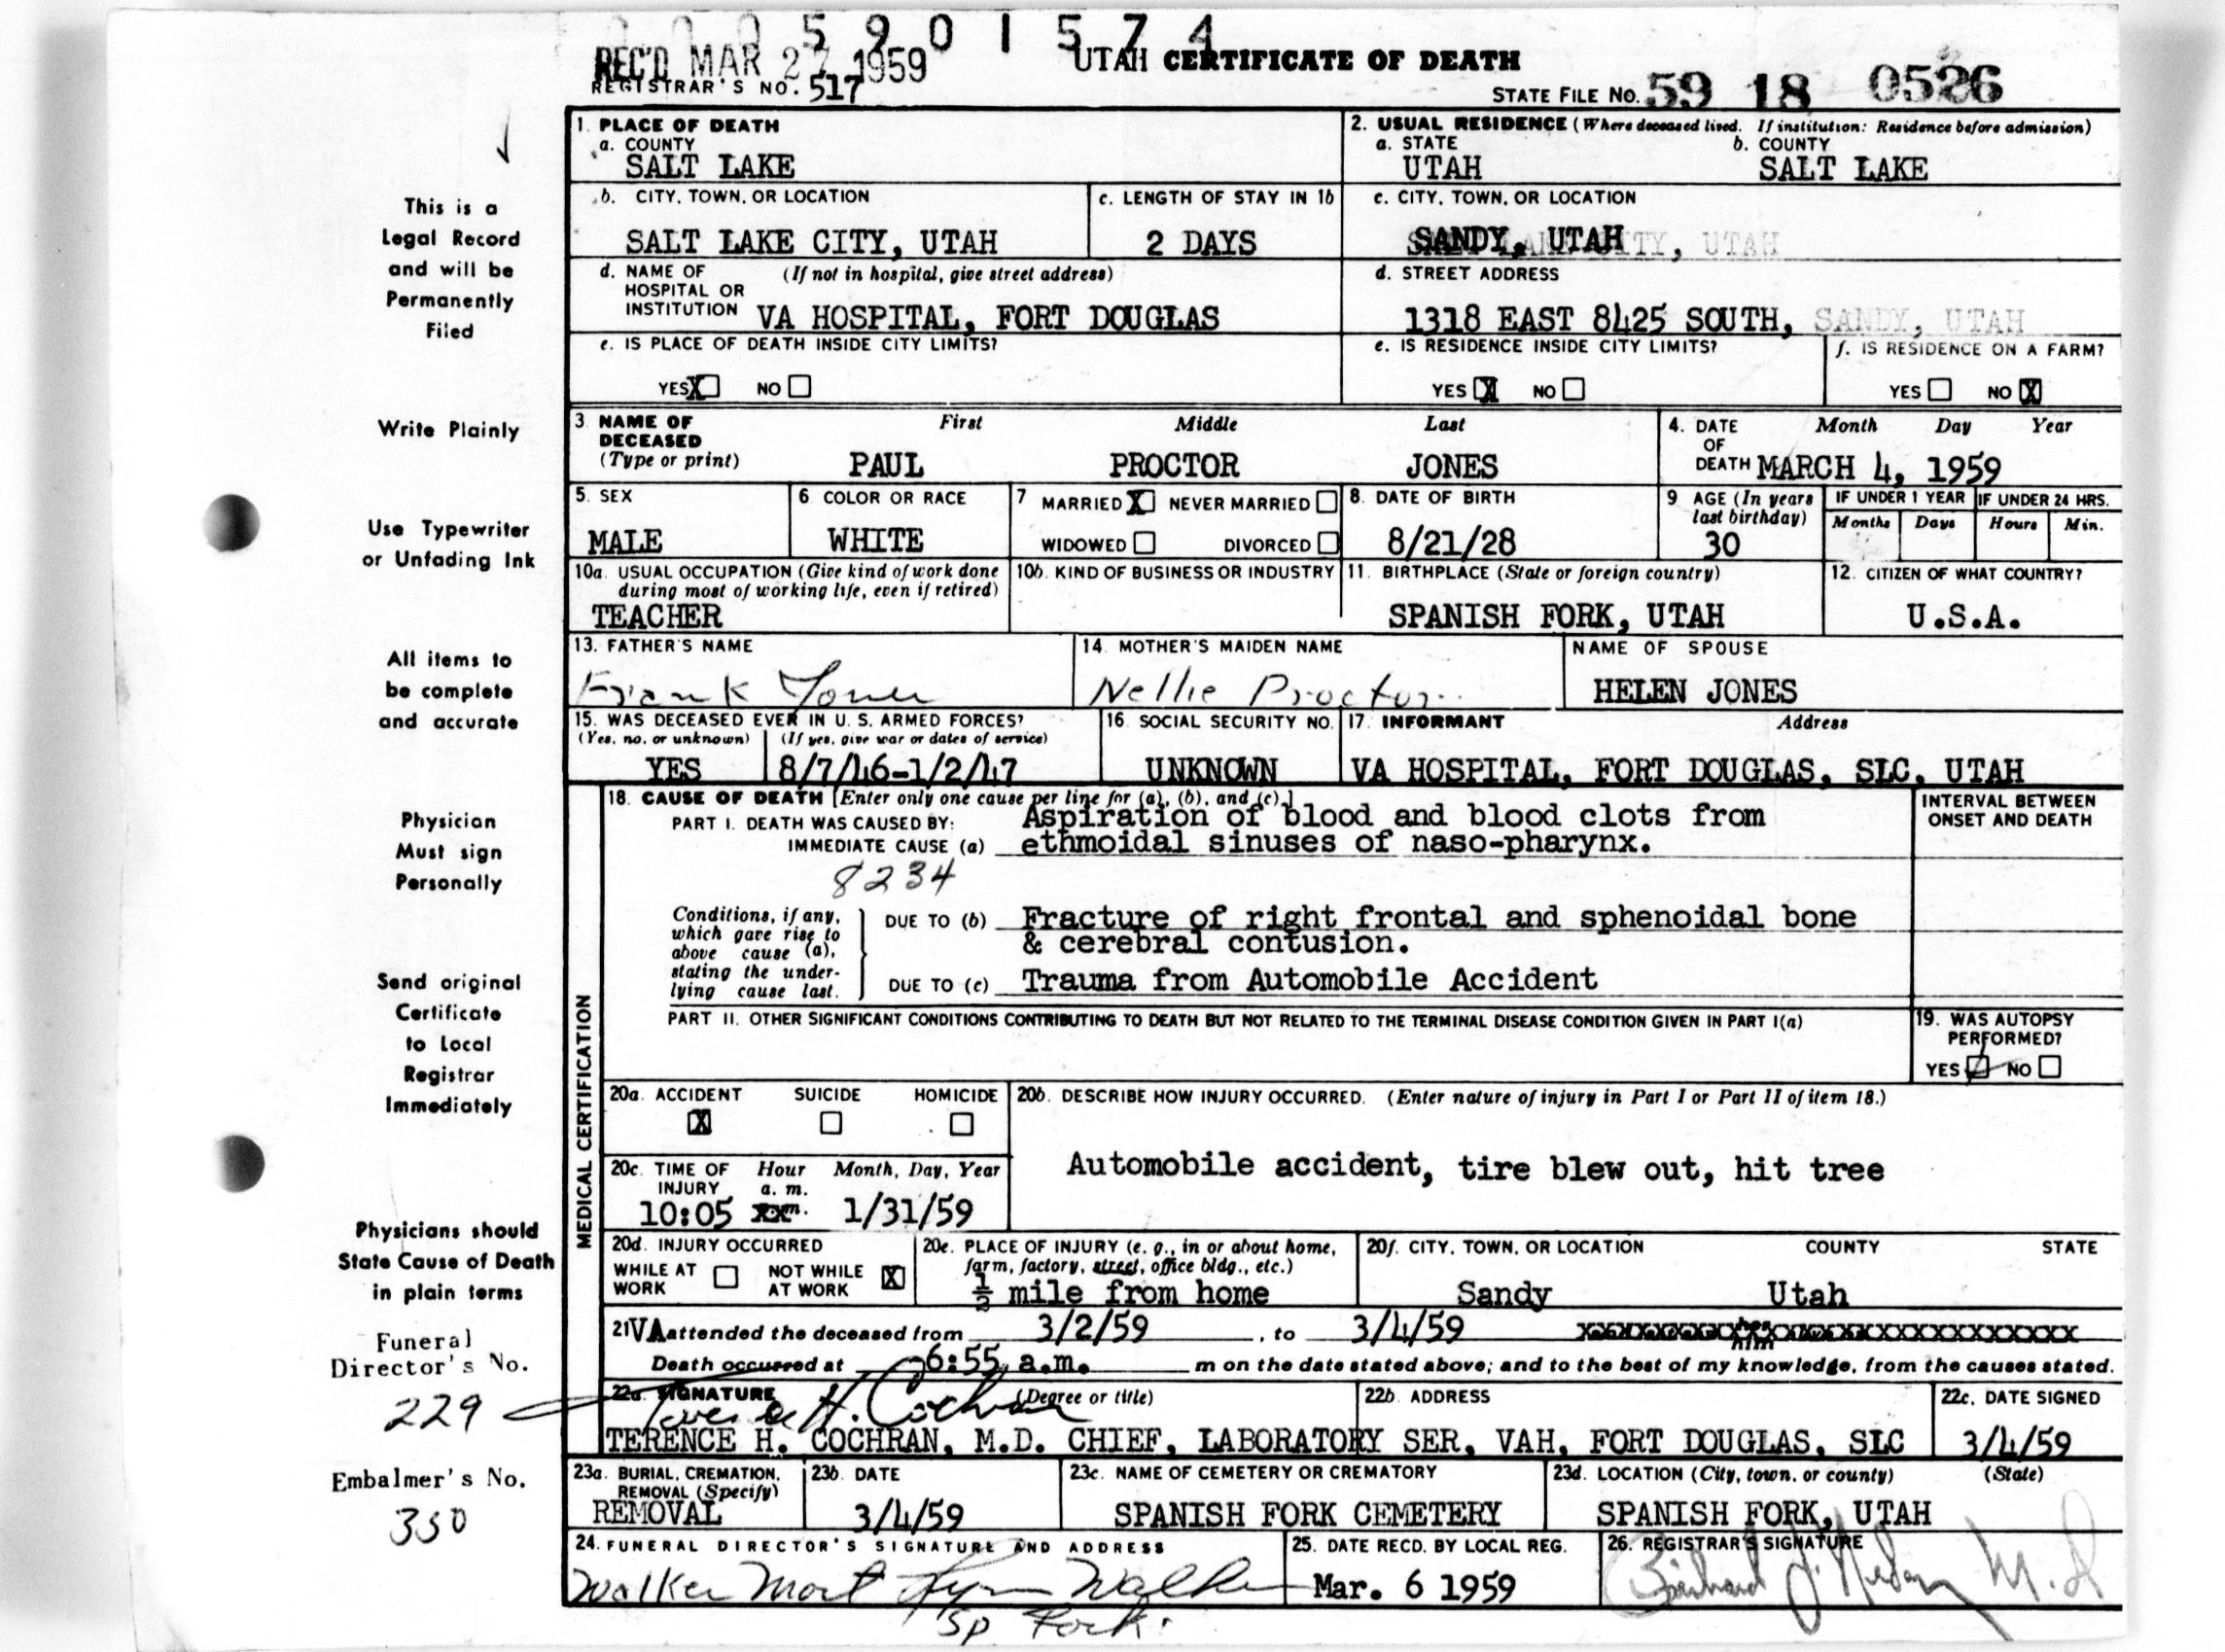 5 9 0 1 5 7 4
REC'D MAR 27 1959
UTAH CERTIFICATE OF DEATH
REGISTRAR'S NO. 517
STATE FILE No. 59 18 0526
1. PLACE OF DEATH
a. COUNTY
SALT LAKE
2. USUAL RESIDENCE (Where deceased lived. If institution: Residence before admission)
a. STATE b. COUNTY
UTAH SALT LAKE
b. CITY, TOWN, OR LOCATION
SALT LAKE CITY, UTAH
c. LENGTH OF STAY IN 1b
2 DAYS
c. CITY, TOWN, OR LOCATION
SANDY, UTAH
d. NAME OF HOSPITAL OR INSTITUTION (If not in hospital, give street address)
VA HOSPITAL, FORT DOUGLAS
d. STREET ADDRESS
1318 EAST 8425 SOUTH, SANDY, UTAH
e. IS PLACE OF DEATH INSIDE CITY LIMITS?
YES X NO
e. IS RESIDENCE INSIDE CITY LIMITS?
YES X NO
f. IS RESIDENCE ON A FARM?
YES NO X
3. NAME OF DECEASED (Type or print)
First Middle Last
PAUL PROCTOR JONES
4. DATE OF DEATH Month Day Year
MARCH 4, 1959
5. SEX
MALE
6. COLOR OR RACE
WHITE
7 MARRIED X NEVER MARRIED
WIDOWED DIVORCED
8. DATE OF BIRTH
8/21/28
9. AGE (In years last birthday)
30
IF UNDER 1 YEAR IF UNDER 24 HRS.
Months Days Hours Min.
10a. USUAL OCCUPATION (Give kind of work done during most of working life, even if retired)
TEACHER
10b. KIND OF BUSINESS OR INDUSTRY
11. BIRTHPLACE (State or foreign country)
SPANISH FORK, UTAH
12. CITIZEN OF WHAT COUNTRY?
U.S.A.
13. FATHER'S NAME
Frank Jones
14. MOTHER'S MAIDEN NAME
Nellie Proctor
NAME OF SPOUSE
HELEN JONES
15. WAS DECEASED EVER IN U. S. ARMED FORCES?
(Yes, no, or unknown) (If yes, give war or dates of service)
YES 8/7/46-1/2/47
16. SOCIAL SECURITY NO.
UNKNOWN
17. INFORMANT Address
VA HOSPITAL, FORT DOUGLAS, SLC, UTAH
MEDICAL CERTIFICATION
18. CAUSE OF DEATH [Enter only one cause per line for (a), (b), and (c).]
PART I. DEATH WAS CAUSED BY:
IMMEDIATE CAUSE (a)
Aspiration of blood and blood clots from
ethmoidal sinuses of naso-pharynx.
8234
Conditions, if any, which gave rise to above cause (a), stating the underlying cause last.
DUE TO (b) Fracture of right frontal and sphenoidal bone
& cerebral contusion.
DUE TO (c) Trauma from Automobile Accident
INTERVAL BETWEEN ONSET AND DEATH
PART II. OTHER SIGNIFICANT CONDITIONS CONTRIBUTING TO DEATH BUT NOT RELATED TO THE TERMINAL DISEASE CONDITION GIVEN IN PART I(a)
19. WAS AUTOPSY PERFORMED?
YES NO
20a. ACCIDENT SUICIDE HOMICIDE
X
20b. DESCRIBE HOW INJURY OCCURRED. (Enter nature of injury in Part I or Part II of item 18.)
Automobile accident, tire blew out, hit tree
20c. TIME OF INJURY Hour Month, Day, Year
a. m.
10:05 1/31/59
20d. INJURY OCCURRED
WHILE AT WORK NOT WHILE AT WORK X
20e. PLACE OF INJURY (e. g., in or about home, farm, factory, street, office bldg., etc.)
½ mile from home
20f. CITY, TOWN, OR LOCATION COUNTY STATE
Sandy Utah
21 VA attended the deceased from 3/2/59, to 3/4/59
Death occurred at 6:55 a.m. m on the date stated above; and to the best of my knowledge, from the causes stated.
22a. SIGNATURE (Degree or title)
Terence H. Cochran
22b. ADDRESS
22c. DATE SIGNED
TERENCE H. COCHRAN, M.D. CHIEF, LABORATORY SER, VAH, FORT DOUGLAS, SLC 3/4/59
23a. BURIAL, CREMATION, REMOVAL (Specify)
REMOVAL
23b. DATE
3/4/59
23c. NAME OF CEMETERY OR CREMATORY
SPANISH FORK CEMETERY
23d. LOCATION (City, town, or county) (State)
SPANISH FORK, UTAH
24. FUNERAL DIRECTOR'S SIGNATURE AND ADDRESS
Walker Mort Walker
Sp Fork.
25. DATE RECD. BY LOCAL REG.
Mar. 6 1959
26. REGISTRAR'S SIGNATURE
M.D
This is a
Legal Record
and will be
Permanently
Filed
Write Plainly
Use Typewriter
or Unfading Ink
All items to
be complete
and accurate
Physician
Must sign
Personally
Send original
Certificate
to Local
Registrar
Immediately
Physicians should
State Cause of Death
in plain terms
Funeral
Director's No.
229
Embalmer's No.
350